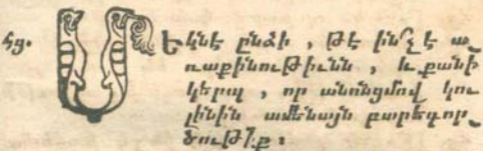 Հց. Մեկնէ ընձի, թէ ի՞նչ է ա֊
ռաքինութիւնն, և քանի
կերպ, որ անոնցմով կու
լինին ամենայն բարեգոր֊
ծութի՛ք։